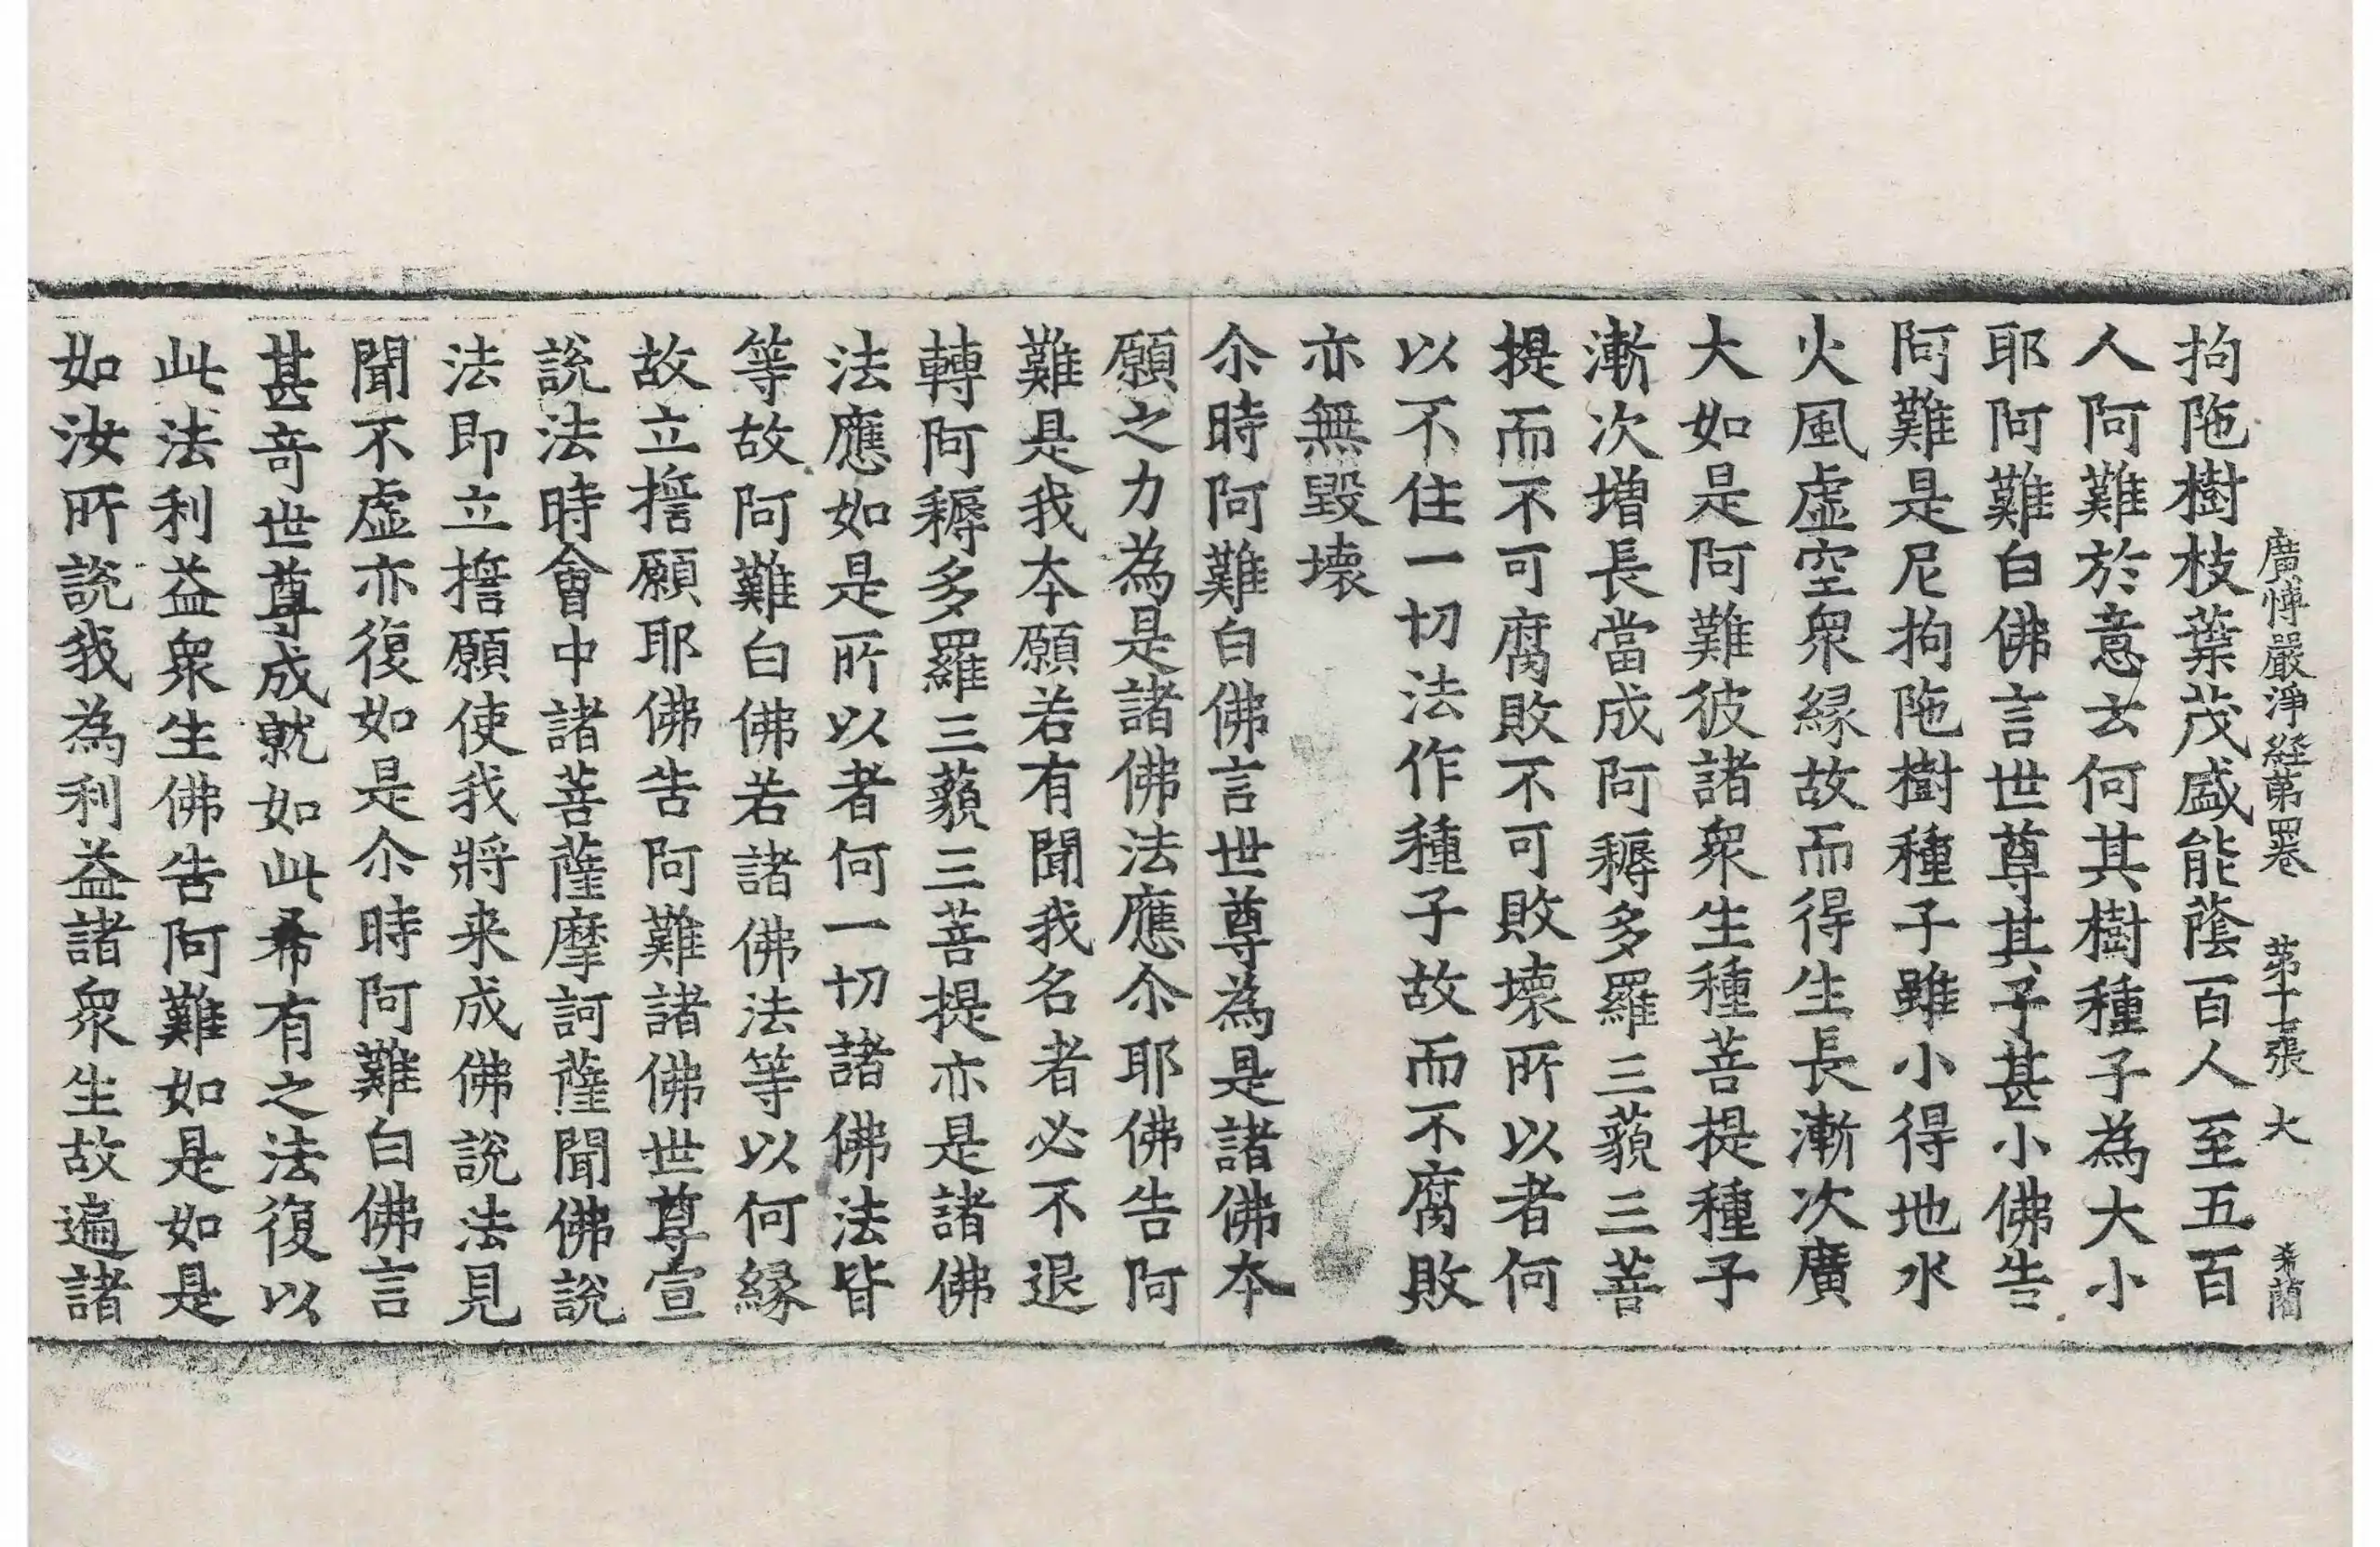 廣博嚴淨經第四卷 第十二張 大
拘陁樹枝葉茂盛能蔭百人至五百
人阿難於意云何其樹種子為大小
耶阿難白佛言世尊其子甚小佛告
阿難是尼拘陁樹種子雖小得地水
火風虛空衆緣故而得生長漸次廣
大如是阿難彼諸衆生種菩提種子
漸次增長當成阿耨多羅三藐三菩
提而不可腐敗不可敗壞所以者何
以不住一切法作種子故而不腐敗
亦無毀壞
尒時阿難白佛言世尊為是諸佛本
願之力為是諸佛法應尒耶佛告阿
難是我本願若有聞我名者必不退
轉阿耨多羅三藐三菩提亦是諸佛
法應如是所以者何一切諸佛法皆
等故阿難白佛若諸佛法等以何緣
故立擔願耶佛告阿難諸佛世尊宣
說法時會中諸菩薩摩訶薩聞佛說
法即立擔願使我將来成佛說法見
聞不虛亦復如是尒時阿難白佛言
甚竒世尊成就如此希有之法復以
此法利益衆生佛告阿難如是如是
如汝所說我為利益諸衆生故遍諸